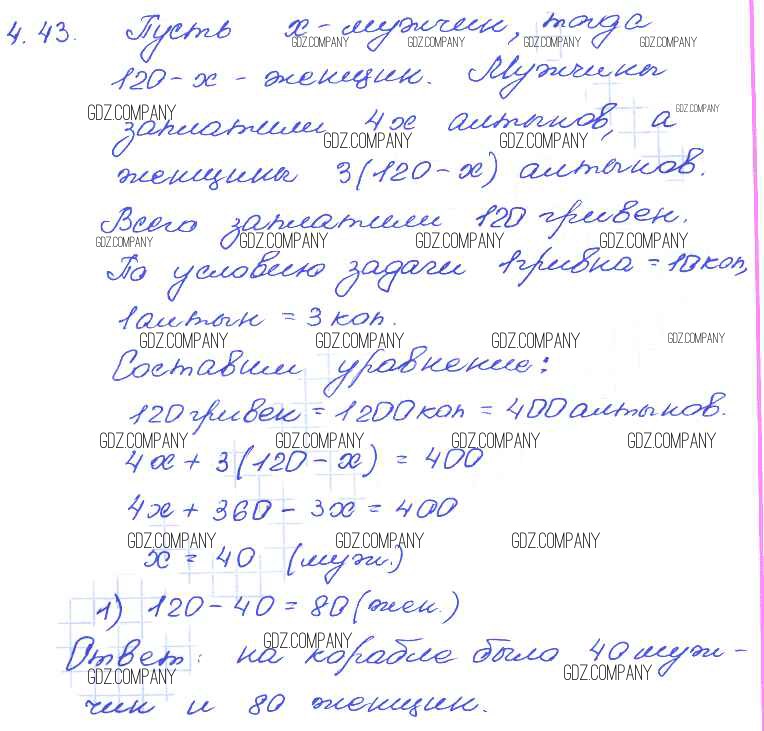 4.43. Пусть x - мужчин, тогда
GDZ.COMPANY GDZ.COMPANY GDZ.COMPANY GDZ.COMPANY
120 - x - женщин. Мужчины
GDZ.COMPANY GDZ.COMPANY
заплатили 4x алтынов, а
GDZ.COMPANY GDZ.COMPANY
женщины 3(120 - x) алтынов.
Всего заплатили 120 гривен.
GDZ.COMPANY GDZ.COMPANY GDZ.COMPANY GDZ.COMPANY
По условию задачи 1 гривна = 10 коп,
1 алтын = 3 коп.
GDZ.COMPANY GDZ.COMPANY GDZ.COMPANY GDZ.COMPANY
Составим уравнение:
120 гривен = 1200 коп = 400 алтынов.
GDZ.COMPANY GDZ.COMPANY GDZ.COMPANY GDZ.COMPANY
4x + 3(120 - x) = 400
4x + 360 - 3x = 400
GDZ.COMPANY GDZ.COMPANY GDZ.COMPANY
x = 40 (муж.)
1) 120 - 40 = 80 (жен.)
GDZ.COMPANY
Ответ: на корабле было 40 муж-
GDZ.COMPANY GDZ.COMPANY
чин и 80 женщин.